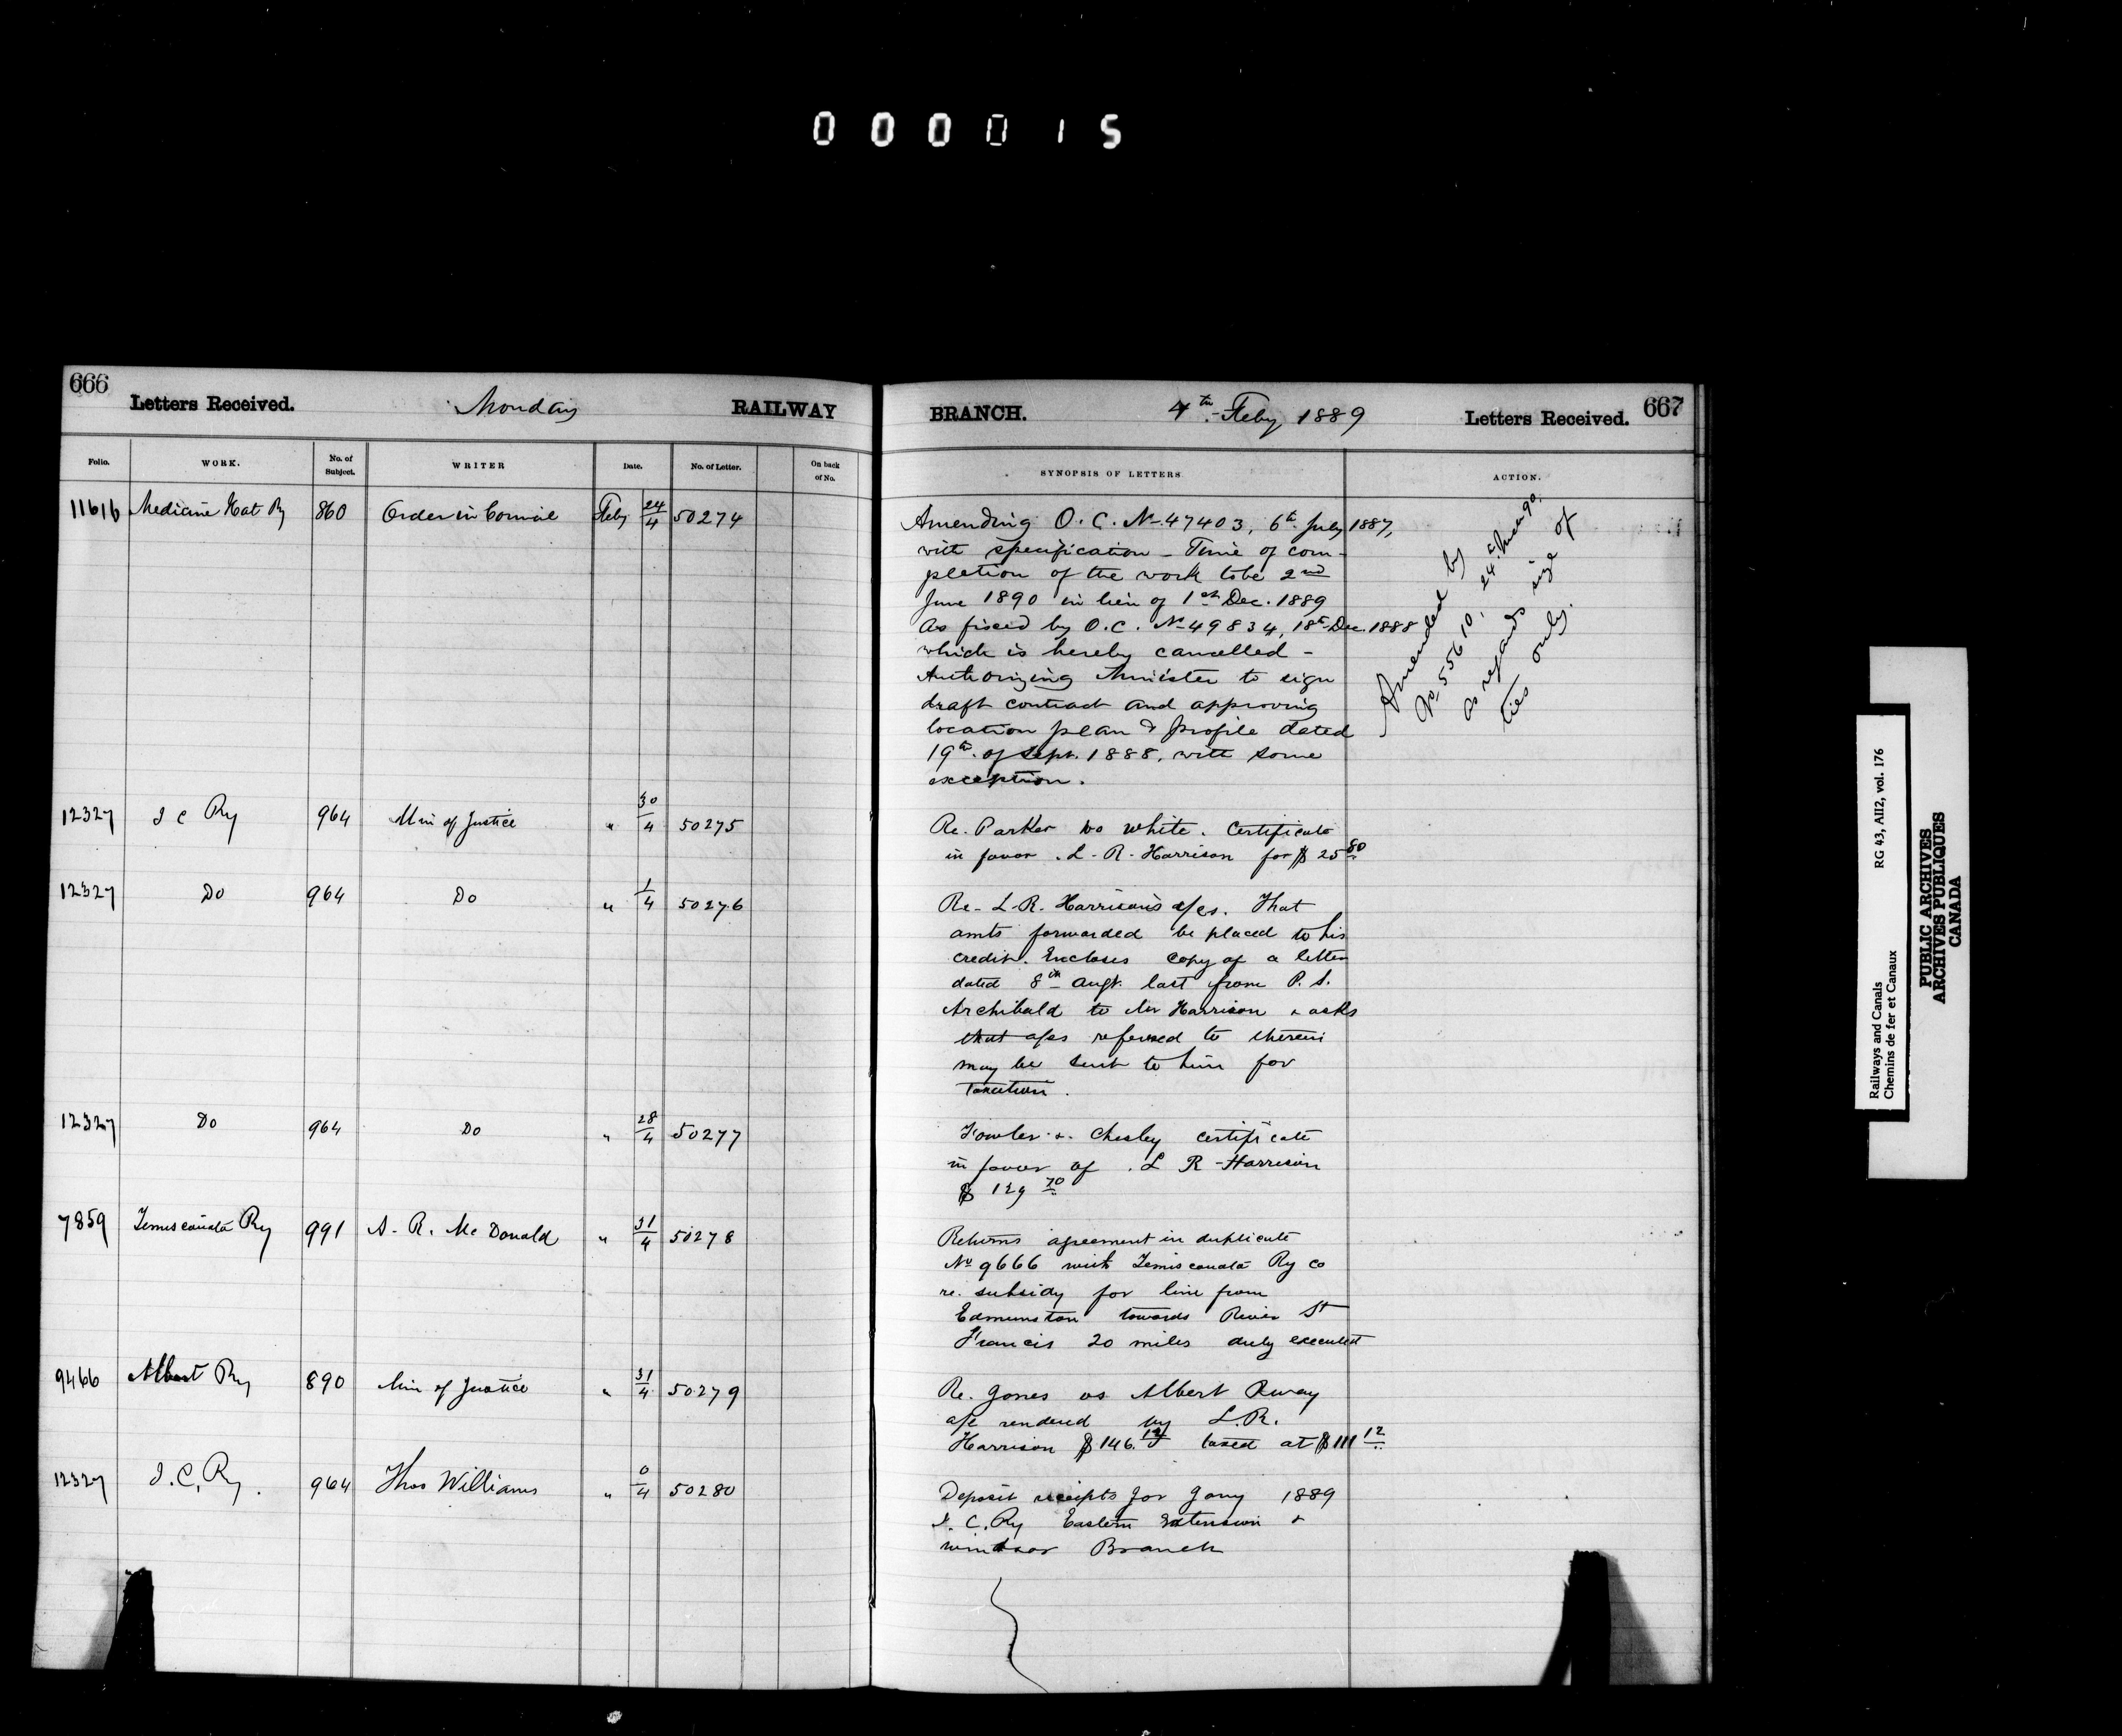 000015
666
Letters Received. Monday RAILWAY
BRANCH. 4th Feby 1889 Letters Received. 667
Folio. WORK. No. of Subject. WRITER Date. No. of Letter. On back of No.
SYNOPSIS OF LETTERS ACTION.
11616 Medicine Hat Ry 860 Order in Council Feby 24/4 50274
Amending O. C. No 47403, 6th July 1887,
with specification - Time of com-
pletion of the work to be 2nd
June 1890 in lieu of 1st Dec. 1889
as fixed by O.C. No 49834, 18th Dec. 1888
which is hereby cancelled -
Authorizing Minister to sign
draft contract and approving
location plan & profile dated
19th of Sept. 1888, with some
exception.
Amended by
No 55610, 24 90.
as regards size of
ties only.
12327 I C Ry 964 Min of Justice " 30/4 50275
Re. Parker vs White. Certificate
in favor. L. R. Harrison for $ 25 80
12327 Do 964 Do " 1/4 50276
Re- L.R. Harrison's a/cs. That
amts forwarded be placed to his
credit. Encloses copy of a letter
dated 8th Augt. last from P. S.
Archibald to Mr Harrison & asks
that a/cs referred to therein
may be sent to him for
Taxation.
12327 Do 964 Do " 28/4 50277
Fowler &. Chesley certificate
in favor of. L R - Harrison
$ 129 70
7859 Temiscouata Ry 991 A. R. McDonald " 31/4 50278
Returns agreement in duplicate
No 9666 with Temiscouata Ry Co
re. subsidy for line from
Edmunston towards River St
Francis 20 miles duly executed
9466 Albert Ry 890 Min of Justice " 31/4 50279
Re. Jones vs Albert Rway
a/c rendered by L.R.
Harrison $ 146. taxed at $ 111 12
12327 I. C. Ry. 964 Thos Williams " 0/4 50280
Deposit receipts for Jany 1889
I. C. Ry Eastern Extension &
Windsor Branch
Railways and Canals RG 43, AII2, vol. 176
Chemins de fer et Canaux
PUBLIC ARCHIVES
ARCHIVES PUBLIQUES
CANADA